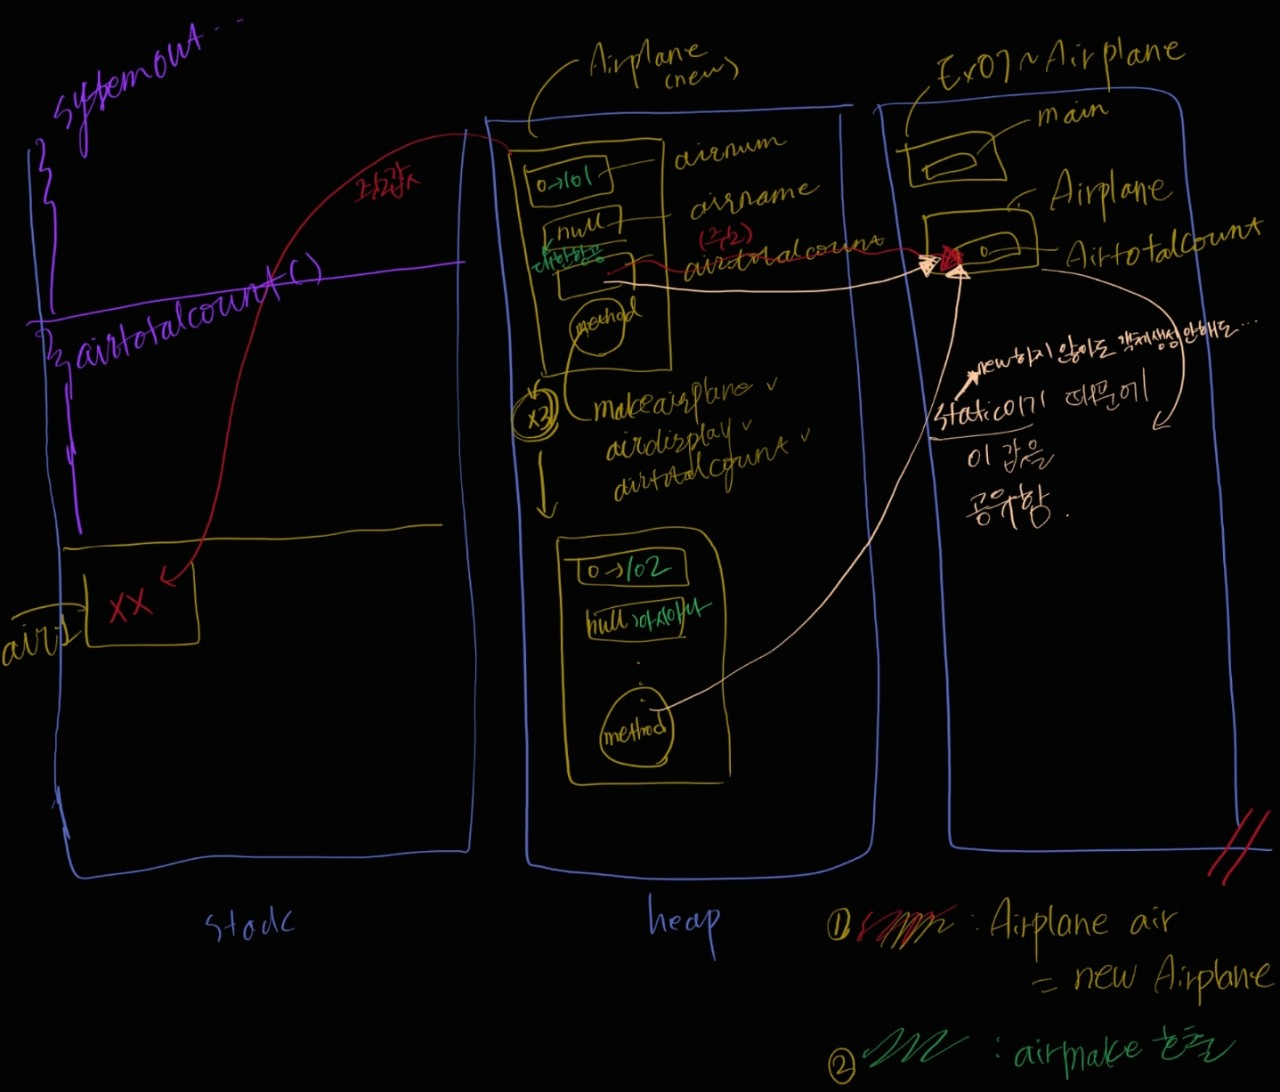 systemout...
airtotalcount()
주소값
air1
XX
stack
Airplane
(new)
0→101
airnum
null
airname
대한항공
(주소)
airtotalcount
method
x3
makeairplane ✓
airdisplay ✓
airtotalcount ✓
0→102
null→아시아나
method
heap
Ex07~Airplane
main
Airplane
0
Airtotalcount
new하지 않아도 객체생성안해도...
static이기 때문에
이 값을
공유함.
① : Airplane air
= new Airplane
② : airmake 호출